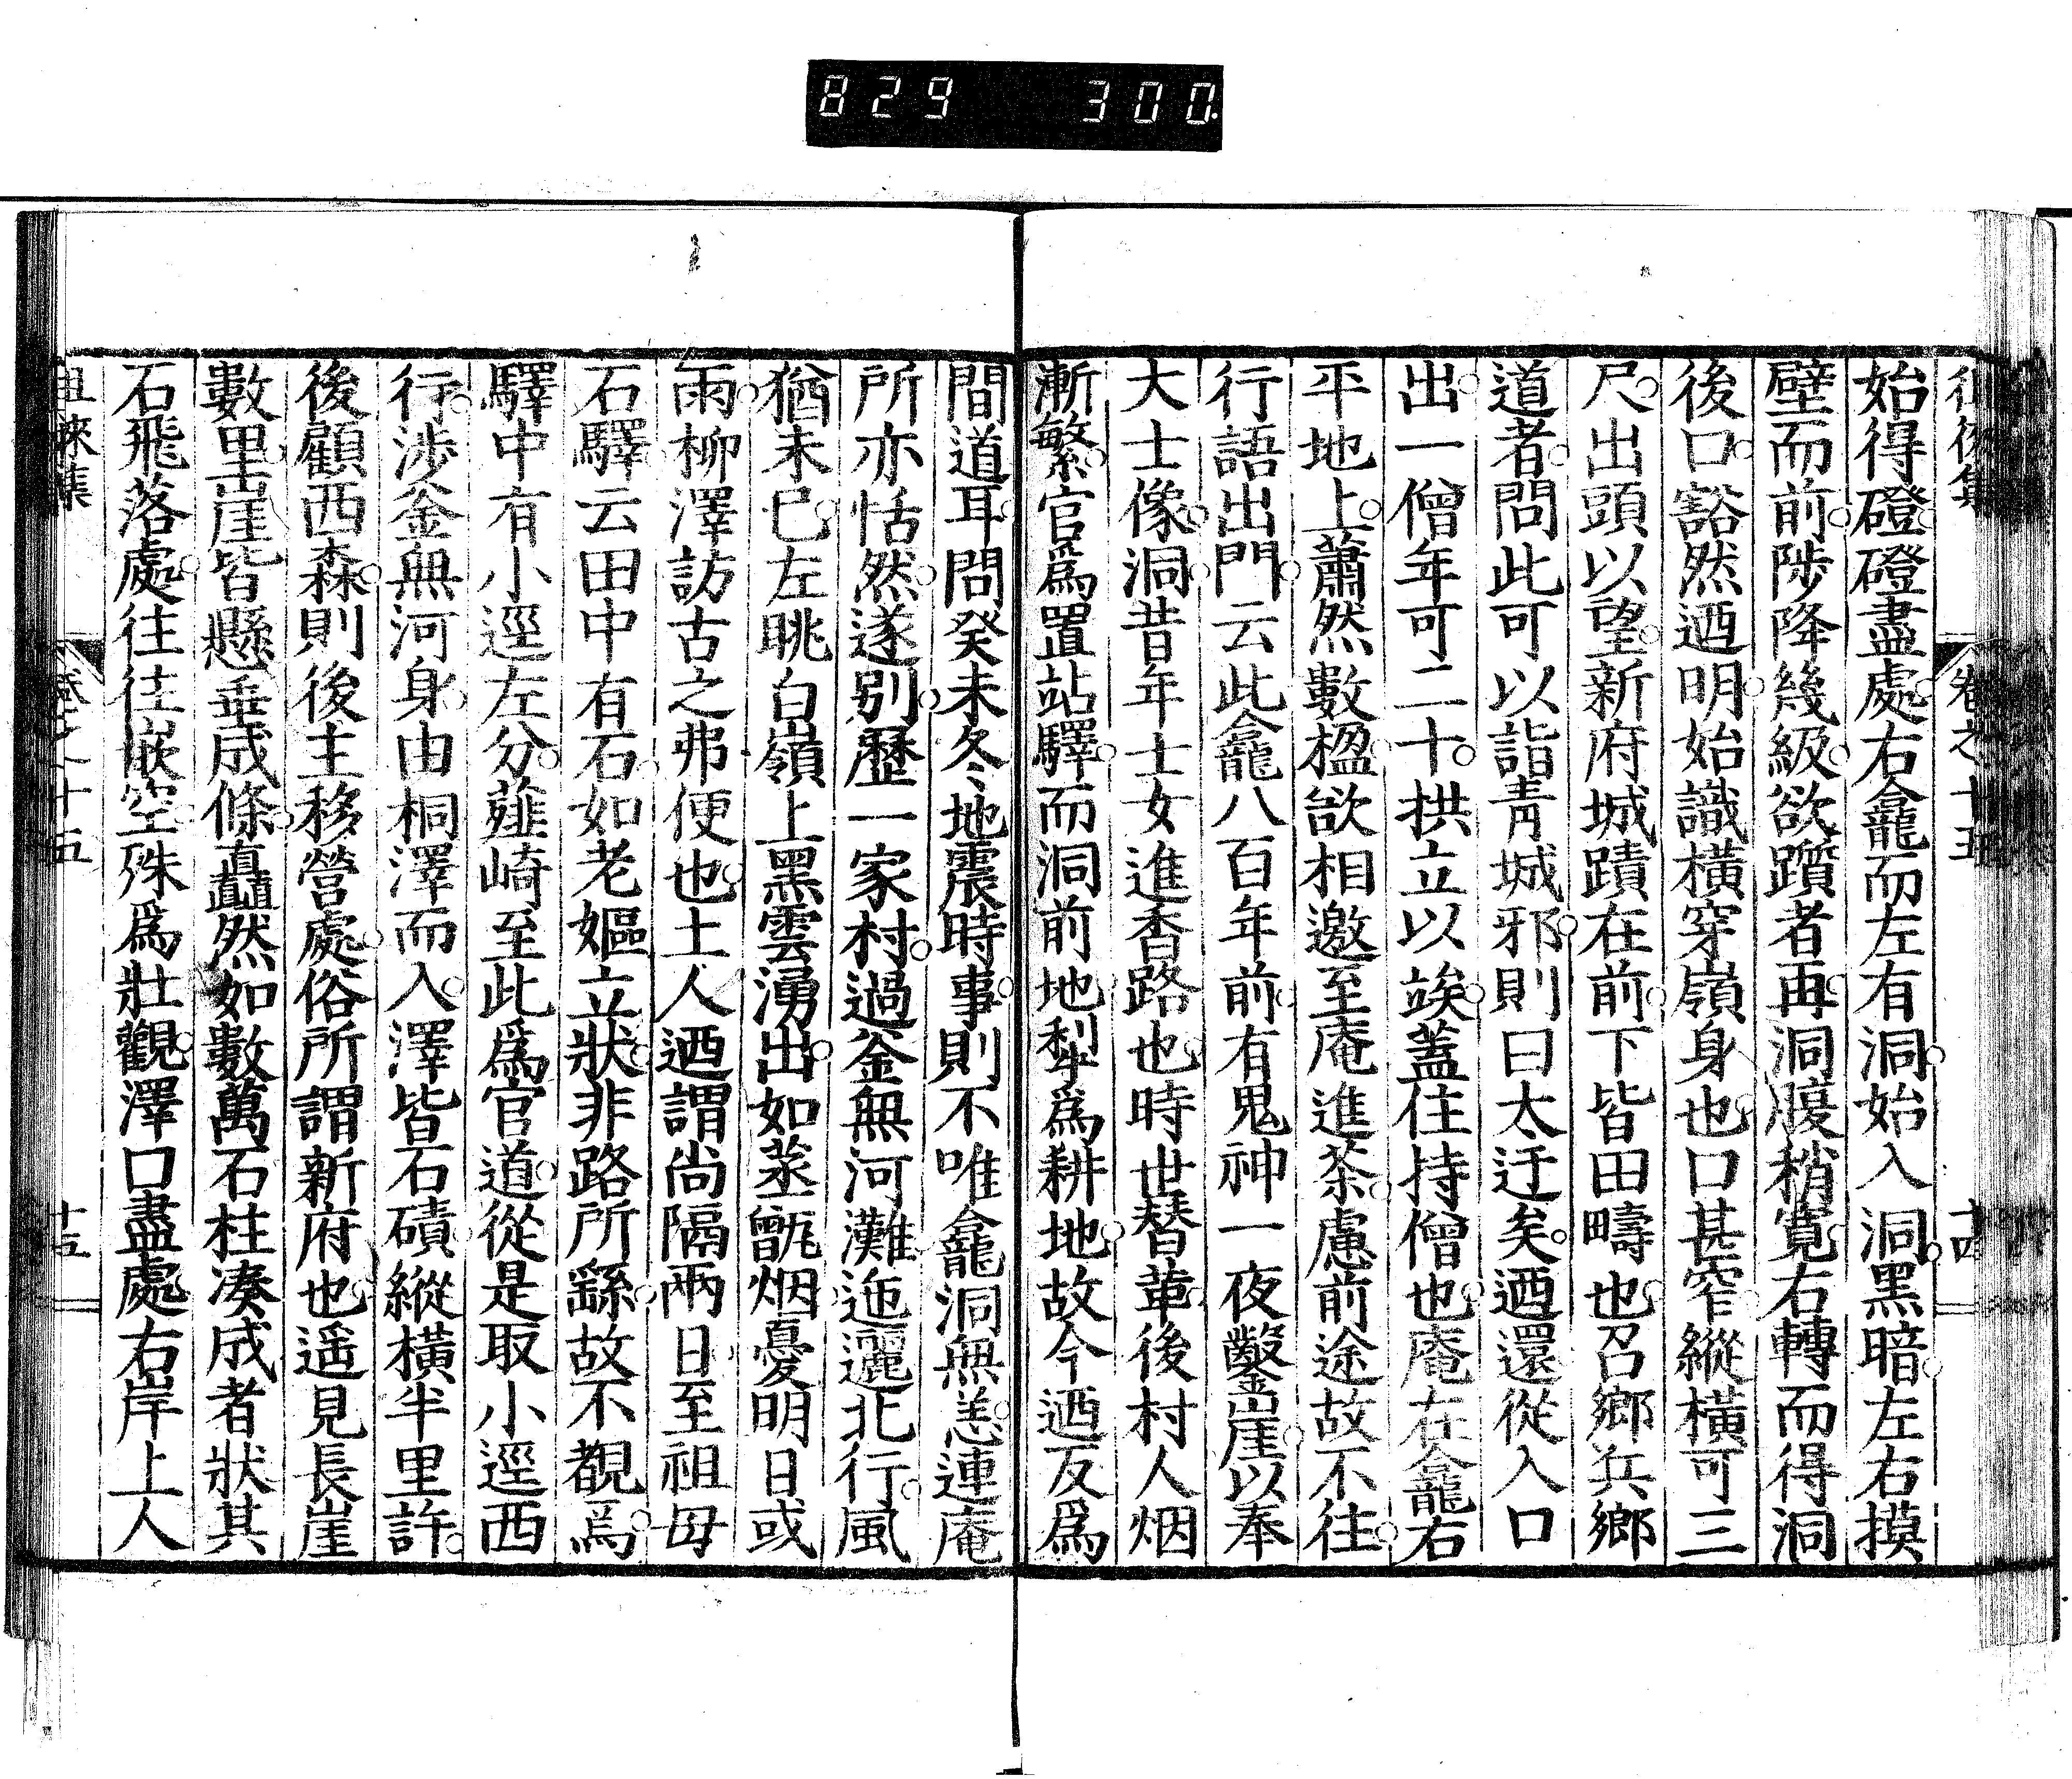 829 300
卷之十五
十四
始得磴磴盡處右龕而左有洞始入洞黑暗左右摸
壁而前陟降幾級欲躓者再洞腹稍寬右轉而得洞
後口豁然迺明始識橫穿嶺身也口甚窄縱橫可三
尺出頭以望新府城蹟在前下皆田疇也召鄉兵鄉
道者問此可以詣青城邪則曰太迂矣迺還從入口
出一僧年可二十拱立以竢蓋住持僧也庵在龕右
平地上蕭然數楹欿相邀至庵進茶慮前途故不往
行語出門云此龕八百年前有鬼神一夜鑿崖以奉
大士像洞昔年士女進香路也時世替革後村人烟
漸繁官爲置站驛而洞前地犁爲耕地故今迺反爲
間道耳問癸未冬地震時事則不唯龕洞無恙連庵
所亦恬然遂別歷一家村過釜無河灘迤邐北行風
猶未已左眺白嶺上黑雲湧出如蒸甑烟憂明日或
雨柳澤訪古之弗便也土人迺謂尚隔兩日至祖母
石驛云田中有石如老嫗立狀非路所繇故不覩焉
驛中有小逕左分薤崎至此爲官道從是取小逕西
行涉釜無河身由桐澤而入澤皆石磧縱橫半里許
後顧西森則後主移營處俗所謂新府也遥見長崖
數里崖皆懸垂成條矗然如數萬石柱湊成者狀其
石飛落處往往嵌空殊爲壯觀澤口盡處右岸上人
徂徠集
卷之十五
十五